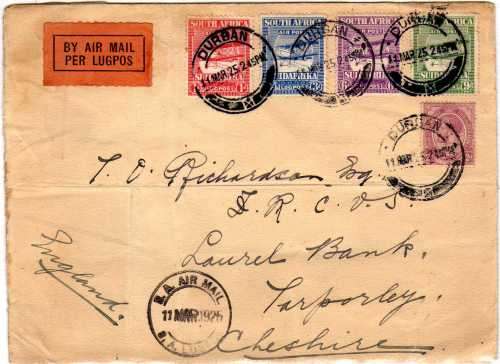 BY AIR MAIL
PER LUGPOS
SOUTH AFRICA
SOUTH AFRICA
SOUTH AFRICA
SOUTH AFRICA
DURBAN
11 MAR 25 2 45 PM
DURBAN
11 MAR 25 2 45 PM
DURBAN
11 MAR 25 2 45 PM
SUIDAFRIKA
SUIDAFRIKA
SUIDAFRIKA
SUIDAFRIKA
DURBAN
11 MAR
T. O. Richardson Esq.
F. R. C. V. S.
Laurel Bank,
Tarporley,
Cheshire.
England.
S.A. AIR MAIL
11 MAR 1925
S.A.